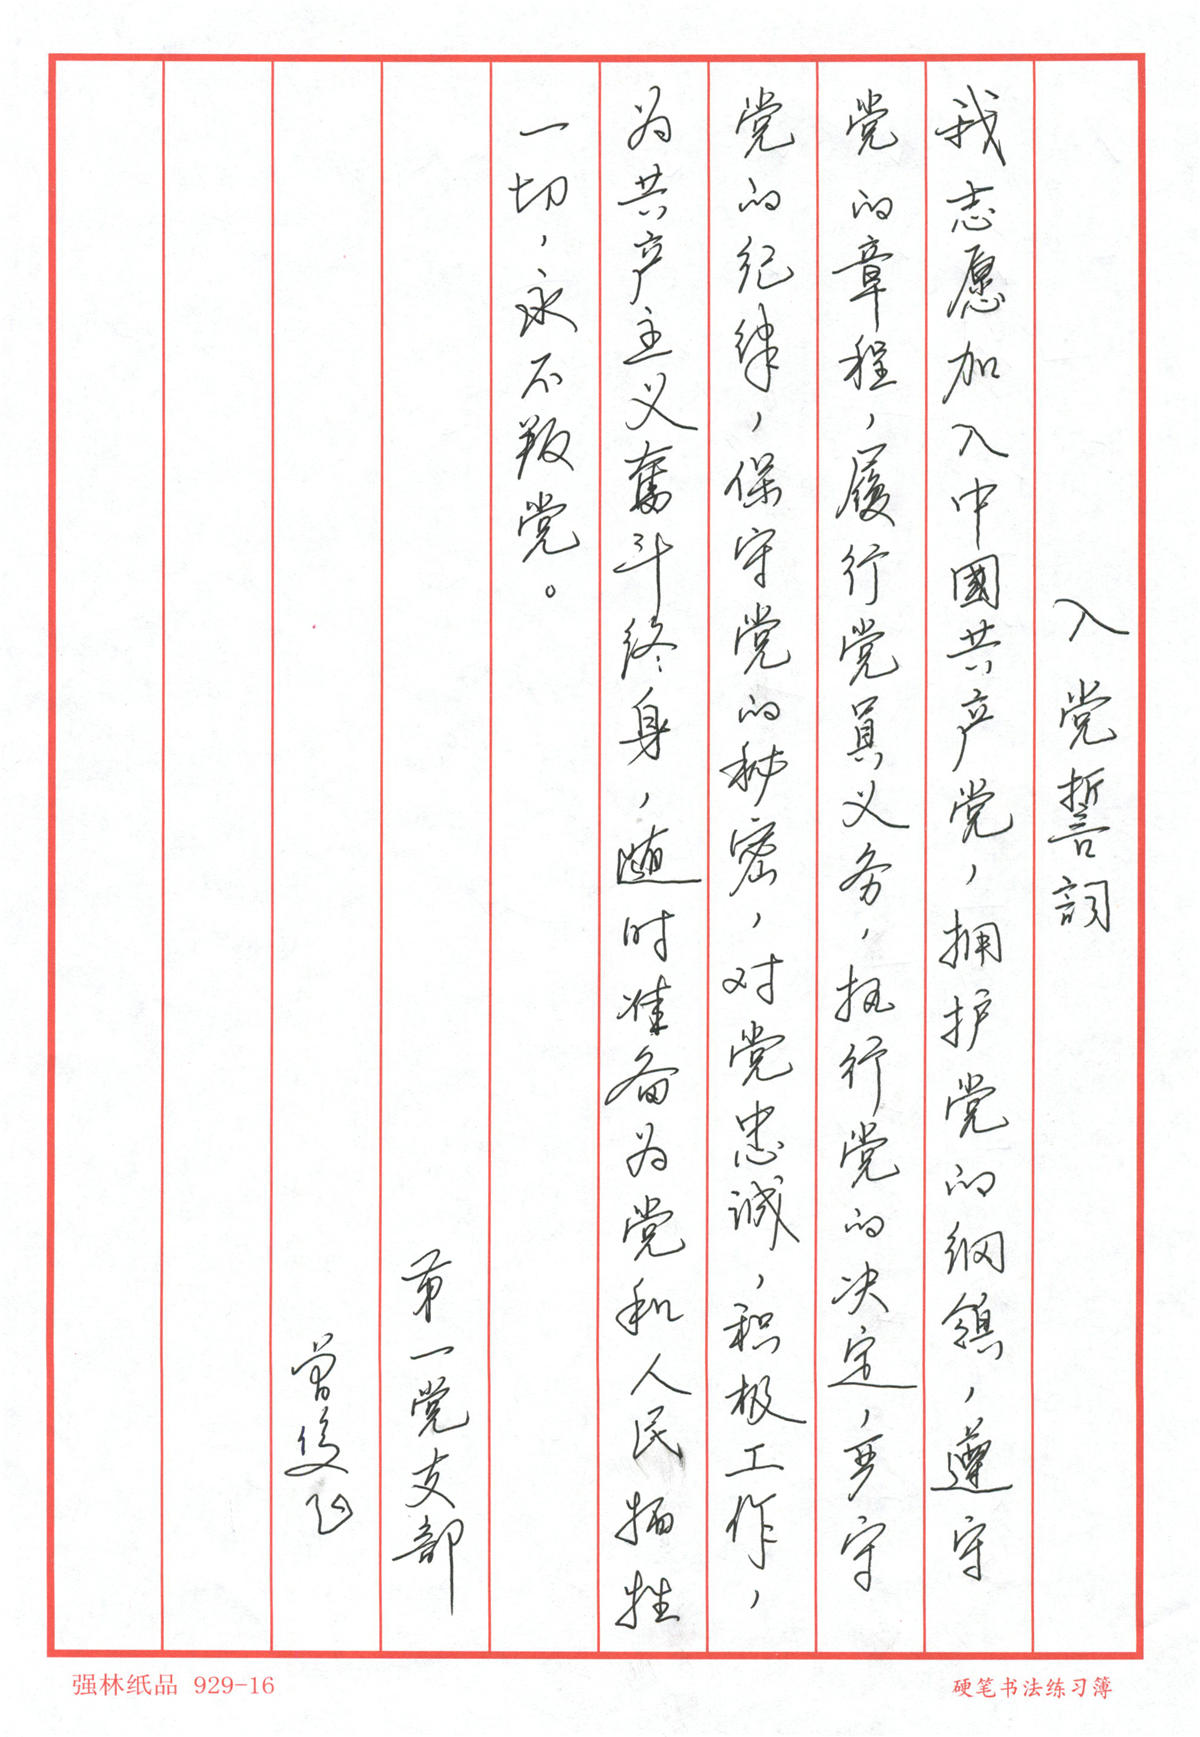 入党誓词
我志愿加入中國共产党，拥护党的纲领，遵守
党的章程，履行党员义务，执行党的决定，严守
党的纪律，保守党的秘密，对党忠诚，积极工作，
为共产主义奮斗终身，随时准备为党和人民牺牲
一切，永不叛党。
第一党支部
曾俊
强林纸品 929-16
硬笔书法练习簿